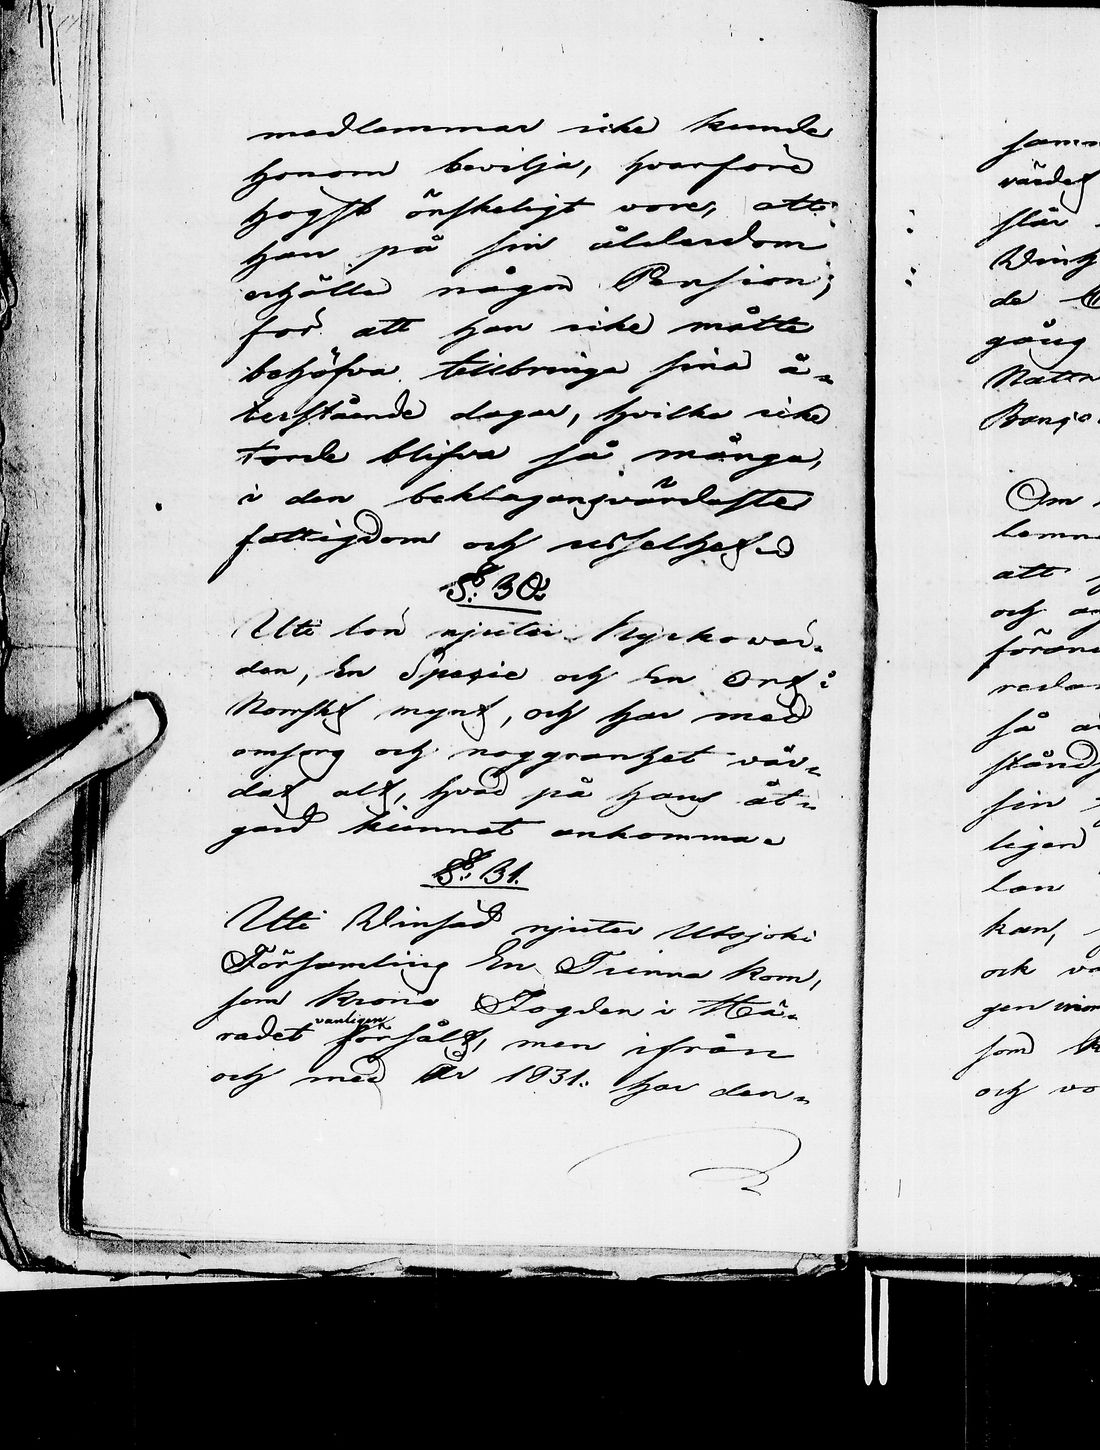 medlemmar icke kunde
honom bevilja, hvarföre
högst önskeligt vore, att
han på sin ålderdom
erhölle någon Pension,
för att han icke måtte
behöfva tillbringa sina å-
terstående dagar, hvilka icke
torde blifva så många,
i den beklagansvärdaste
fattigdom och uselhet
§. 30.
Uti lön njuter Kyrkovär-
den, En Spesie och En Ort i
Norskt mynt, och har med
omsorg och noggranhet vår-
dat alt, hvad på hans åt-
gärd kunnat ankomma.
§. 31.
Uti Winsäd njuter Utsjoki
Församling En Tunna korn,
som Krono Fogden i Hä-
radet vanligen försålt, men ifrån
och med År 1831. har den-
samm
värdet
står
Winh
de
gång
Natt
Om
lemn
att
och
föran
redan
så
stånd
sin
ligen
lan
kan,
ock
gen
som
och